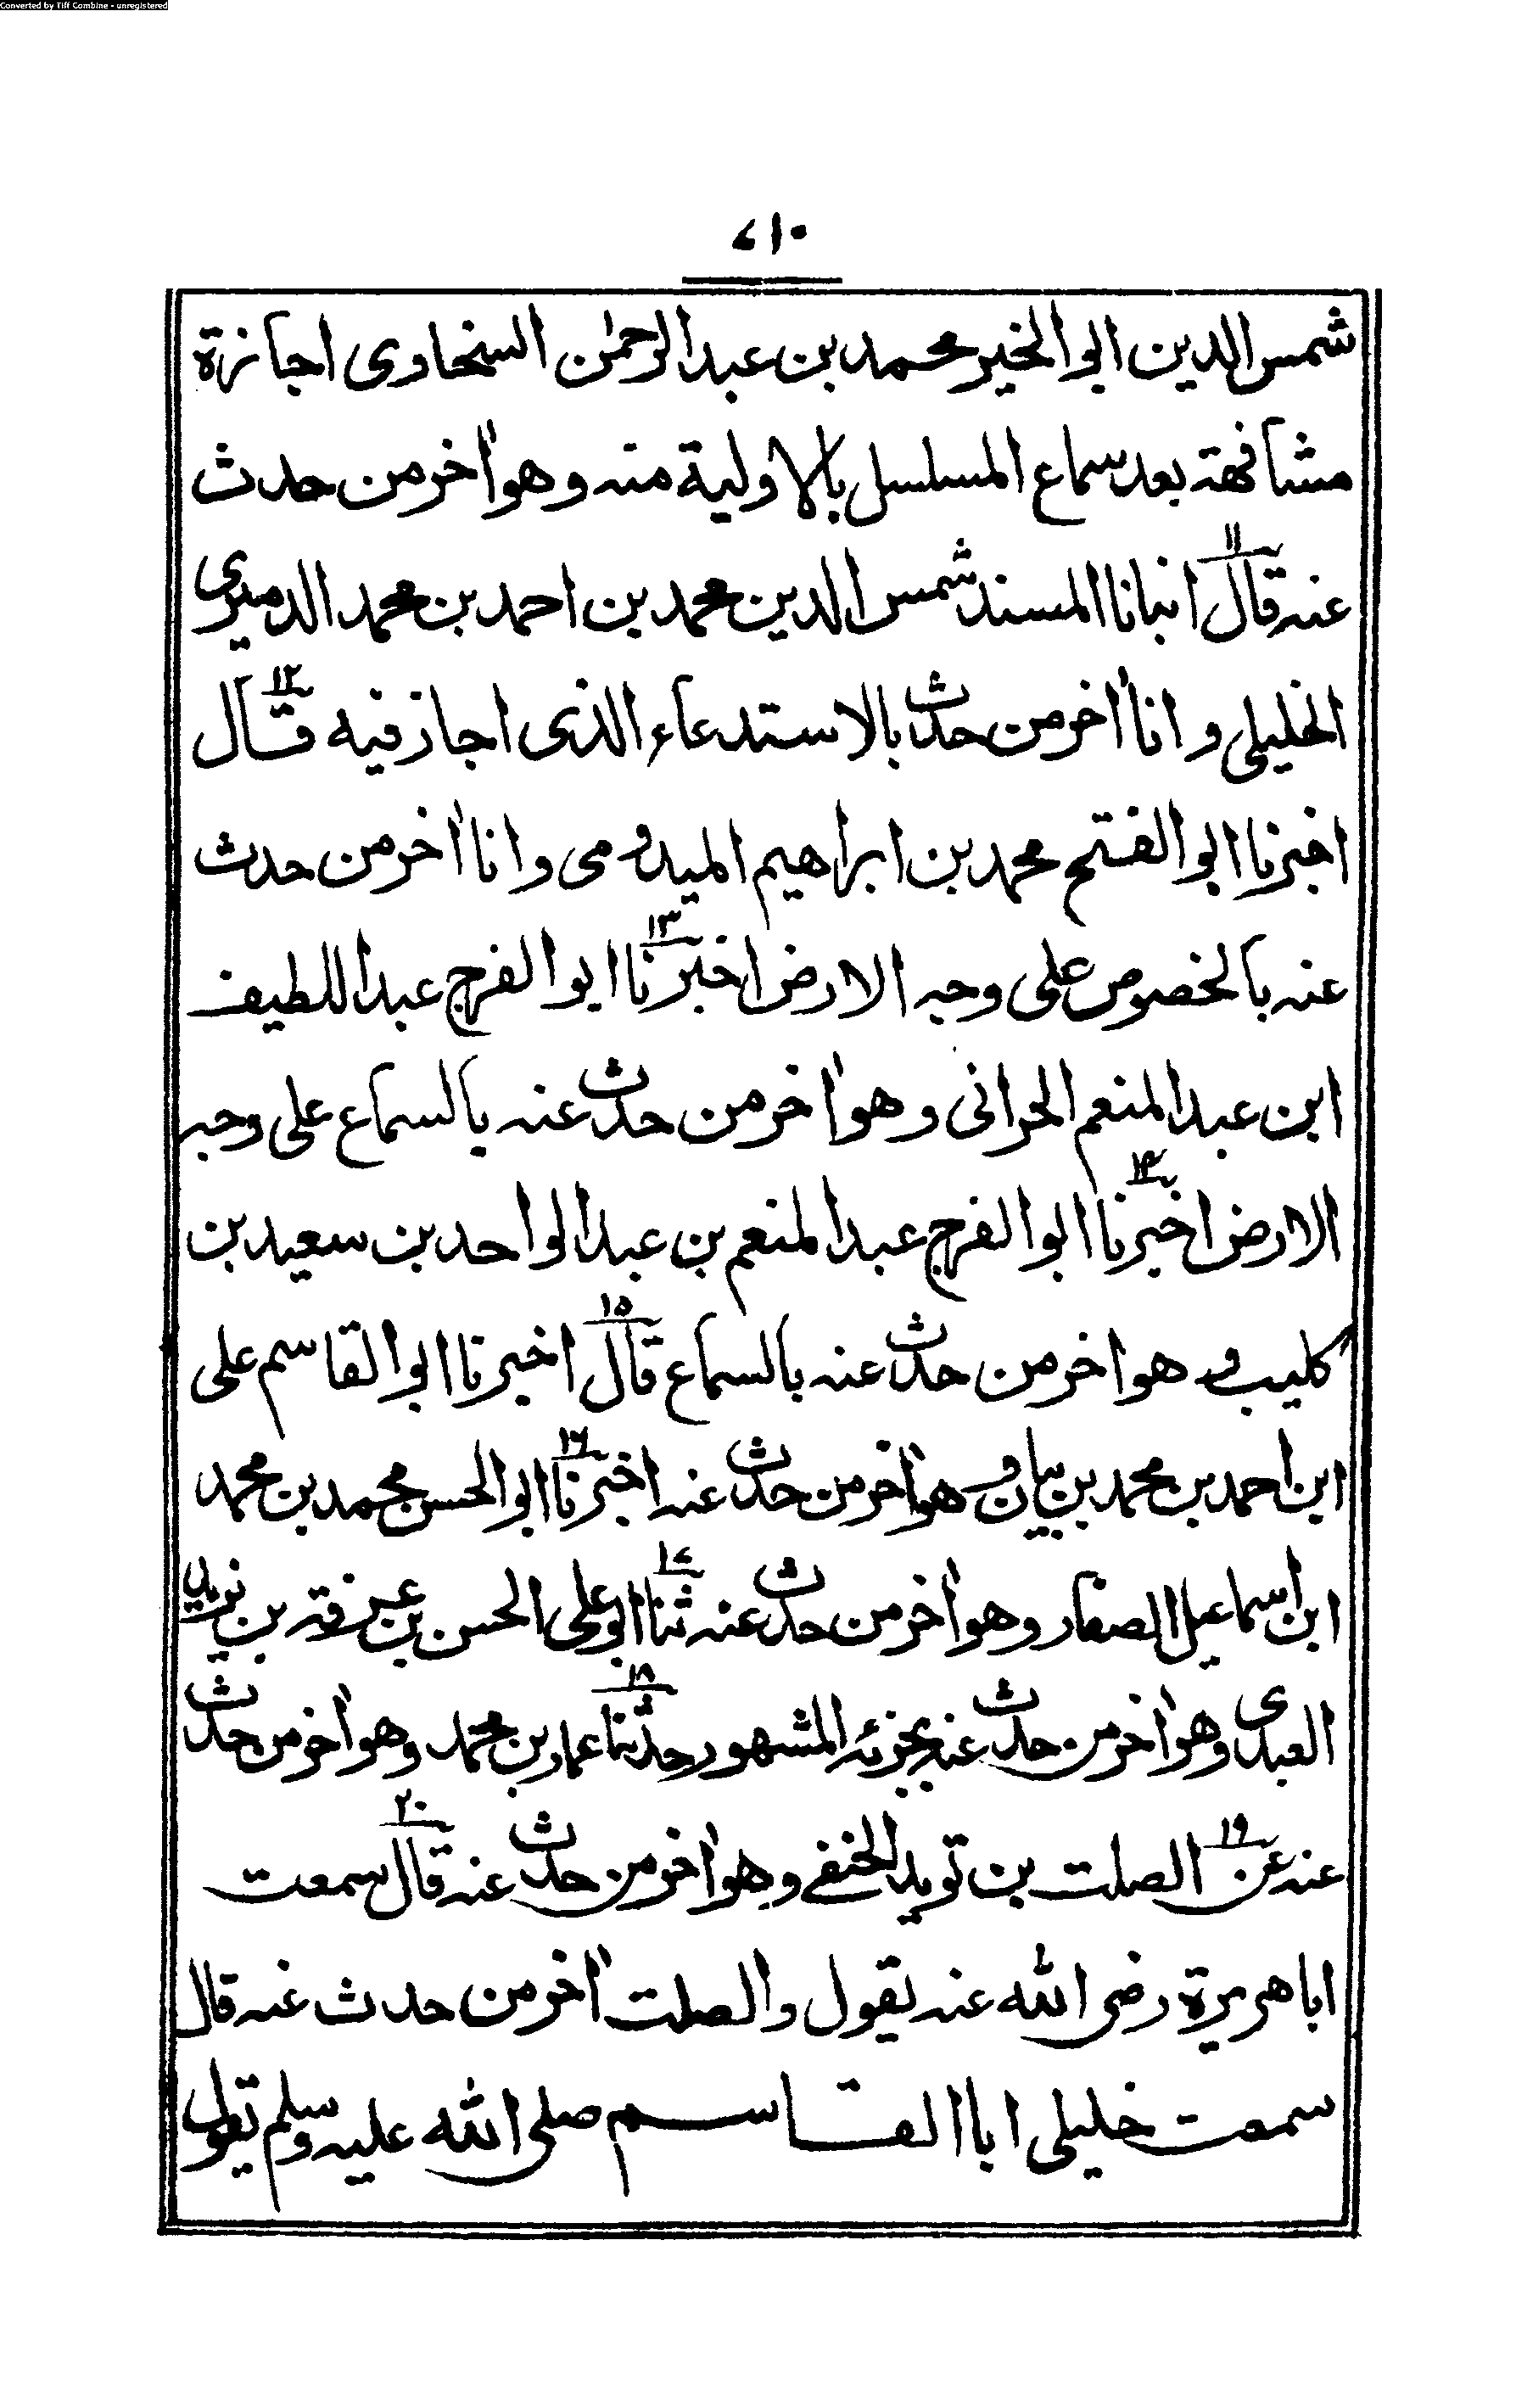 Converted by Tiff Combine - unregistered
۷۱۰
شمس الدين ابو الخير محمد بن عبد الرحمٰن السخاوى اجازة
مشافهة بعد سماع المسلسل بالاولية منه وهو اٰخر من حدث
عنه قال ۱۱ انبانا المسند شمس الدين محمد بن احمد بن محمد الدميرى
الخليلى وانا اٰخر من حدث بالاستدعاء الذى اجاز فيه قال ۱۲
اخبرنا ابو الفتح محمد بن ابراهيم الميدومى وانا اٰخر من حدث
عنه بالخصوص على وجه الارض اخبرنا ۱۳ ابو الفرج عبد اللطيف
ابن عبد المنعم الحرانى وهو اٰخر من حدث عنه بالسماع على وجه
الارض اخبرنا ۱۴ ابو الفرج عبد المنعم بن عبد الواحد بن سعيد بن
كليب وهو اخر من حدث عنه بالسماع قال ۱۵ اخبرنا ابو القاسم على
ابن احمد بن محمد بن بيان وهو اٰخر من حدث عنه اخبرنا ۱۶ ابو الحسن محمد بن محمد
ابن اسماعيل الصفار وهو اٰخر من حدث عنه ثنا ۱۷ ابو على الحسن بن عرفة بن يزيد
العبدى وهو اٰخر من حدث عنه بجزئه المشهور حدثنا ۱۸ عمار بن محمد وهو اٰخر من حدث
عنه عن ۱۹ الصلت بن قويد الحنفے وهو اٰخر من حدث عنه قال ۲۰ سمعت
ابا هريرة رضى الله عنه يقول والصلت اٰخر من حدث عنه قال
سمعت خليلى ابا القاسم صلى الله عليه وسلم يقول